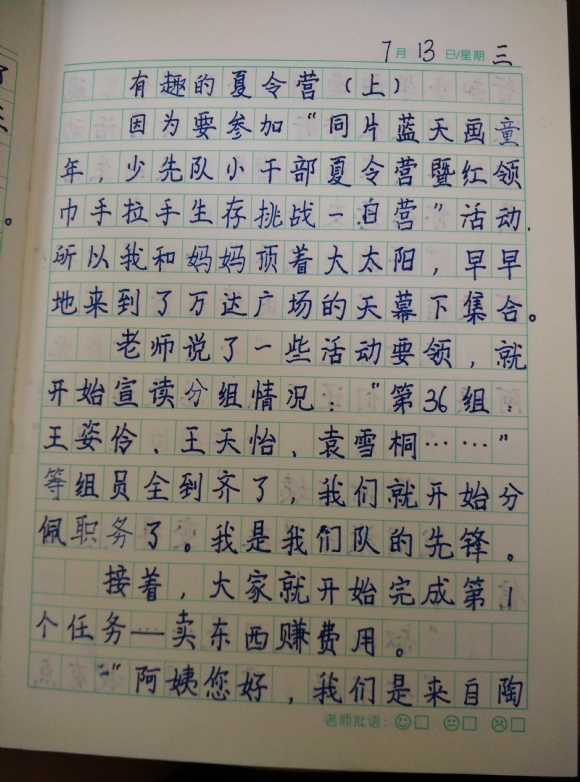 7月13日/星期三
有趣的夏令营(上)
因为要参加“同片蓝天画童
年,少先队小干部夏令营暨红领
巾手拉手生存挑战一日营”活动,
所以我和妈妈顶着大太阳,早早
地来到了万达广场的天幕下集合。
老师说了一些活动要领,就
开始宣读分组情况:“第36组:
王姿伶、王天怡、袁雪桐……”
等组员全到齐了,我们就开始分
佩职务了。我是我们队的先锋。
接着,大家就开始完成第1
个任务——卖东西赚费用。
“阿姨您好,我们是来自陶
老师批语: